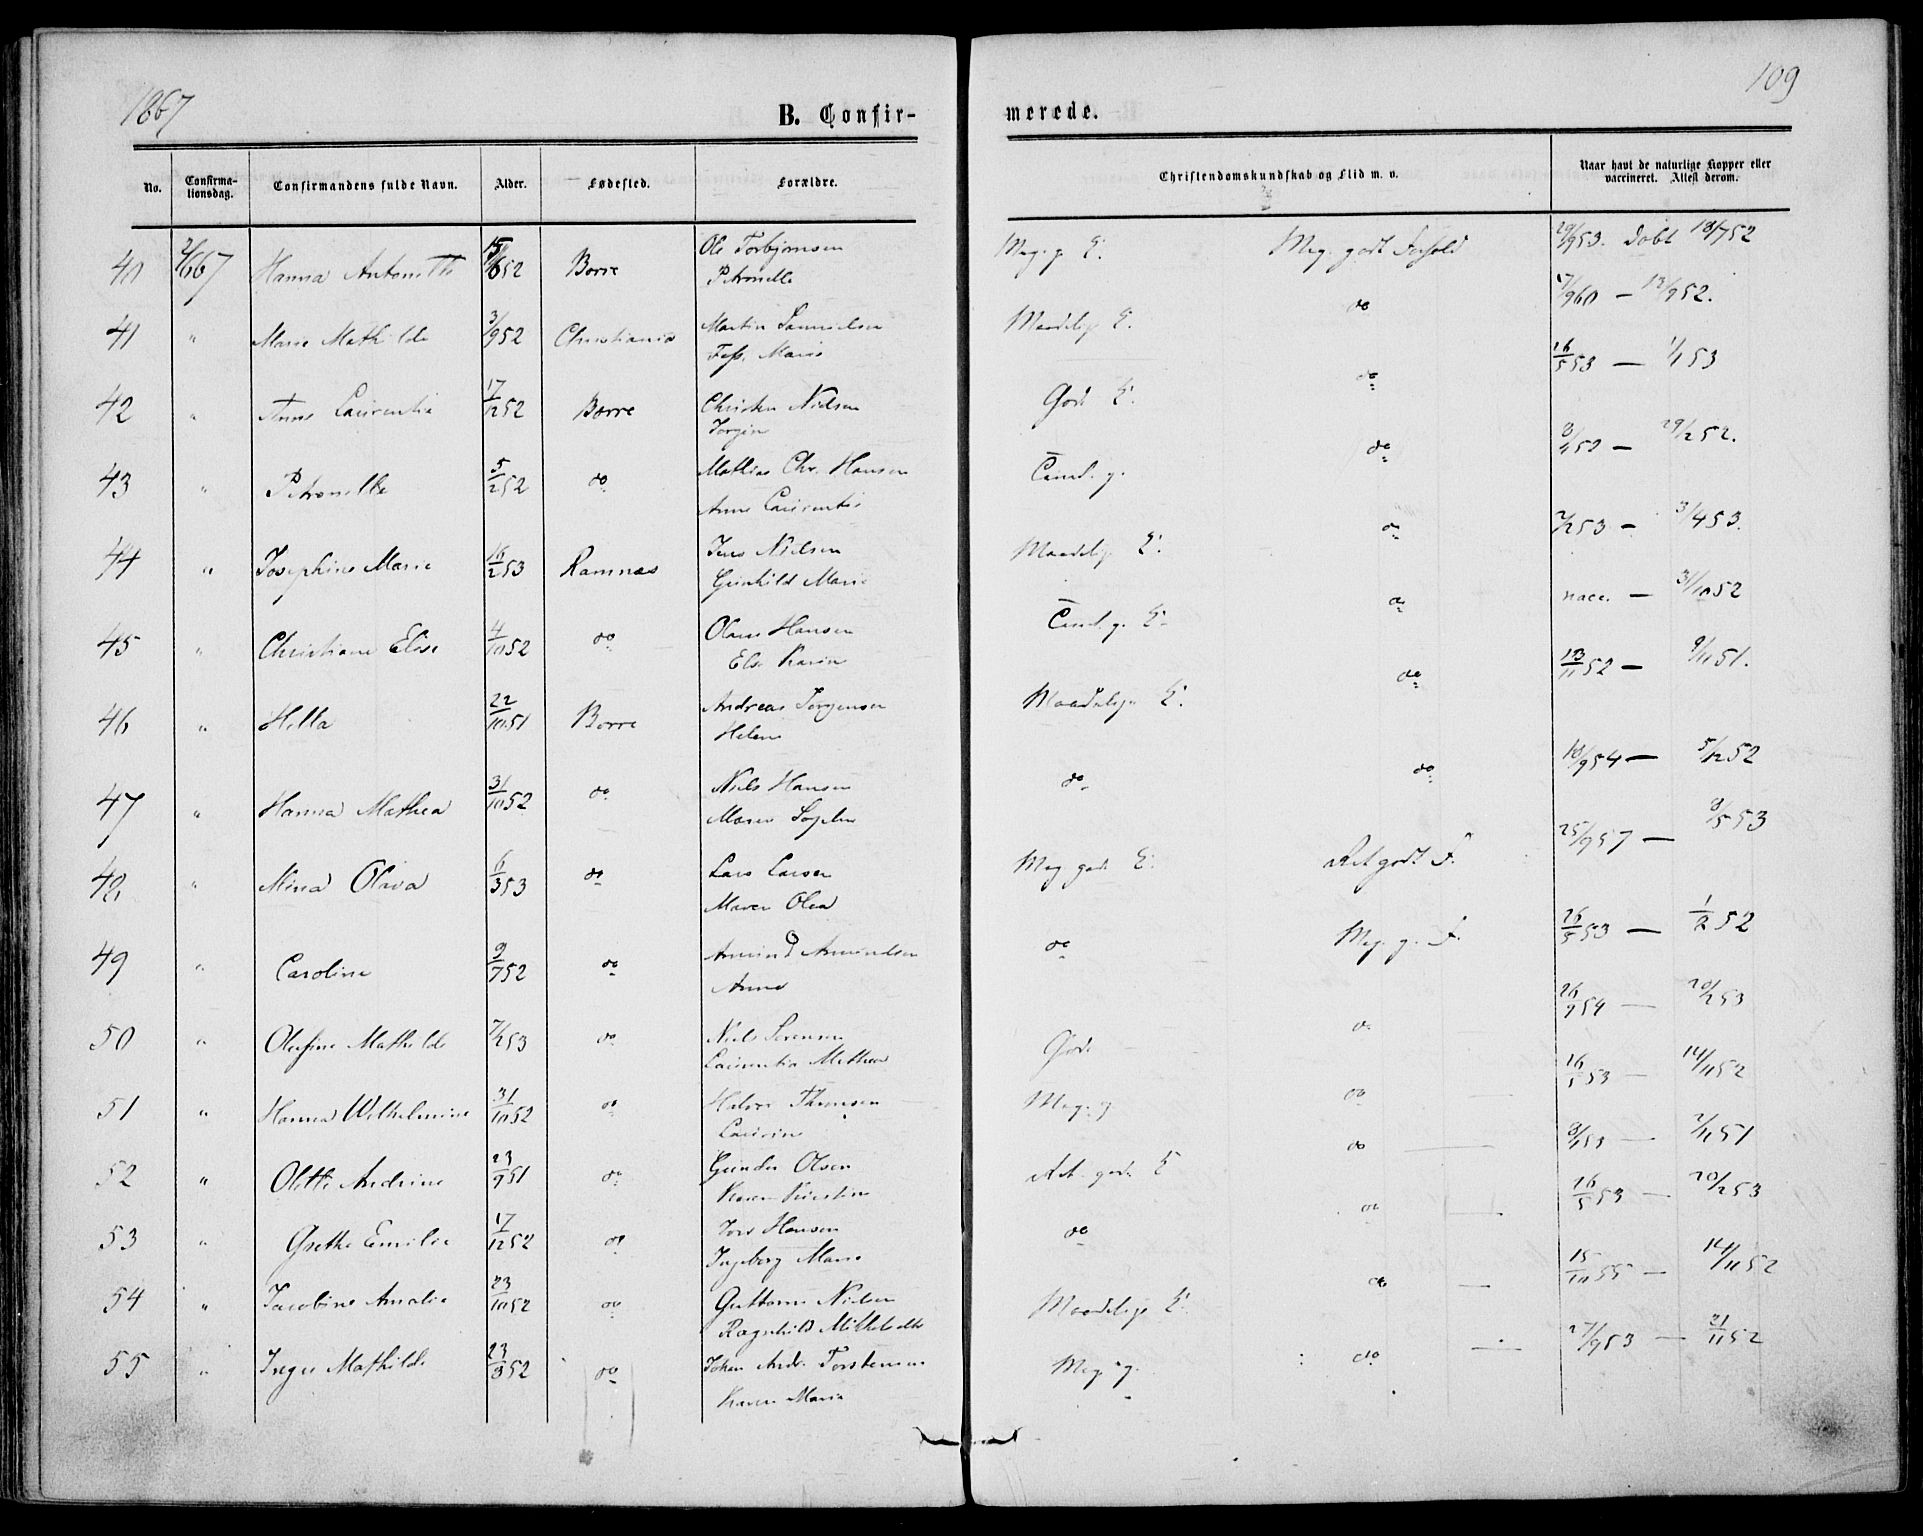 1867
109
B. Confir-
merede.
No. Confirma-tionsdag. Confirmandens fulde Navn. Alder. Fødested. Forældre. Christendomskundskab og Flid m. v. Naar havt de naturlige Kopper eller vaccineret. Attest derom.
40 2/6 67 Hanna Antonette 15/6 52 Borre Ole Torbjørnsen Meg. g. E. Meg. godt Forhold 29/9 53. Døbt 18/7 52
Petronelle
41 " Maren Mathilde 3/9 52 Christiania Martin Samuelsen Maadelig E. do 17/9 60 — 13/9 52.
Marie
42 " Anne Laurentia 17/12 52 Borre Christen Nielsen God E. do 16/5 53 — 1/1 53
Jorgine
43 " Petronelle 5/2 52 do Mathias Chr. Hansen Temel. g. do — 29/2 52.
Anne Laurentia
44 " Josephine Marie 16/2 53 Ramnæs Jens Nielsen Maadelig E. do 7/7 53 — 3/4 53.
Gunhild Marie
45 " Christiane Elise 4/10 52 do Olaus Hansen Temel. g. E. do vacc. — 31/10 52
Else Karine
46 " Hella 22/10 51 Borre Andreas Jørgensen Maadelige E. do 13/11 52 — 9/11 51.
Helene
47 " Hanna Mathea 31/10 52 do Niels Hansen do do 10/9 54 — 5/12 52
Maren Sophie
48 " Mina Olava 6/3 53 do Lars Larsen Meg. god E. Ret godt F. 25/9 57 — 8/5 53
Maren Olea
49 " Caroline 9/7 52 do Amund Amundsen do Meg. g. F. 26/5 53 — 1/8 52
Anne
50 " Olufine Mathilde 7/1 53 do Niels Sørensen God do 26/9 54 — 20/2 53
Laurentia Mathea
51 " Hanna Wilhelmine 31/10 52 do Halvor Thomsen Meg. g. do 16/5 53 — 14/11 52
Laurine
52 " Olette Andrine 23/9 51 do Gunder Olsen Ret god E do 8/1 53 — 2/11 51
Karen Kirstine
53 " Grethe Emilie 17/12 52 do Hansen do do 16/5 53 — 20/2 53
Ingeborg Marie
54 " Jacobine Amalie 23/10 52 do Guttorm Nielsen Maadelige E. do 15/10 55 — 14/11 52
Ragnhild
55 " Inger Mathilde 23/8 52 do Johan Andr. Torstensen Meg. g. do 27/9 53 — 21/11 52
Karen Maria